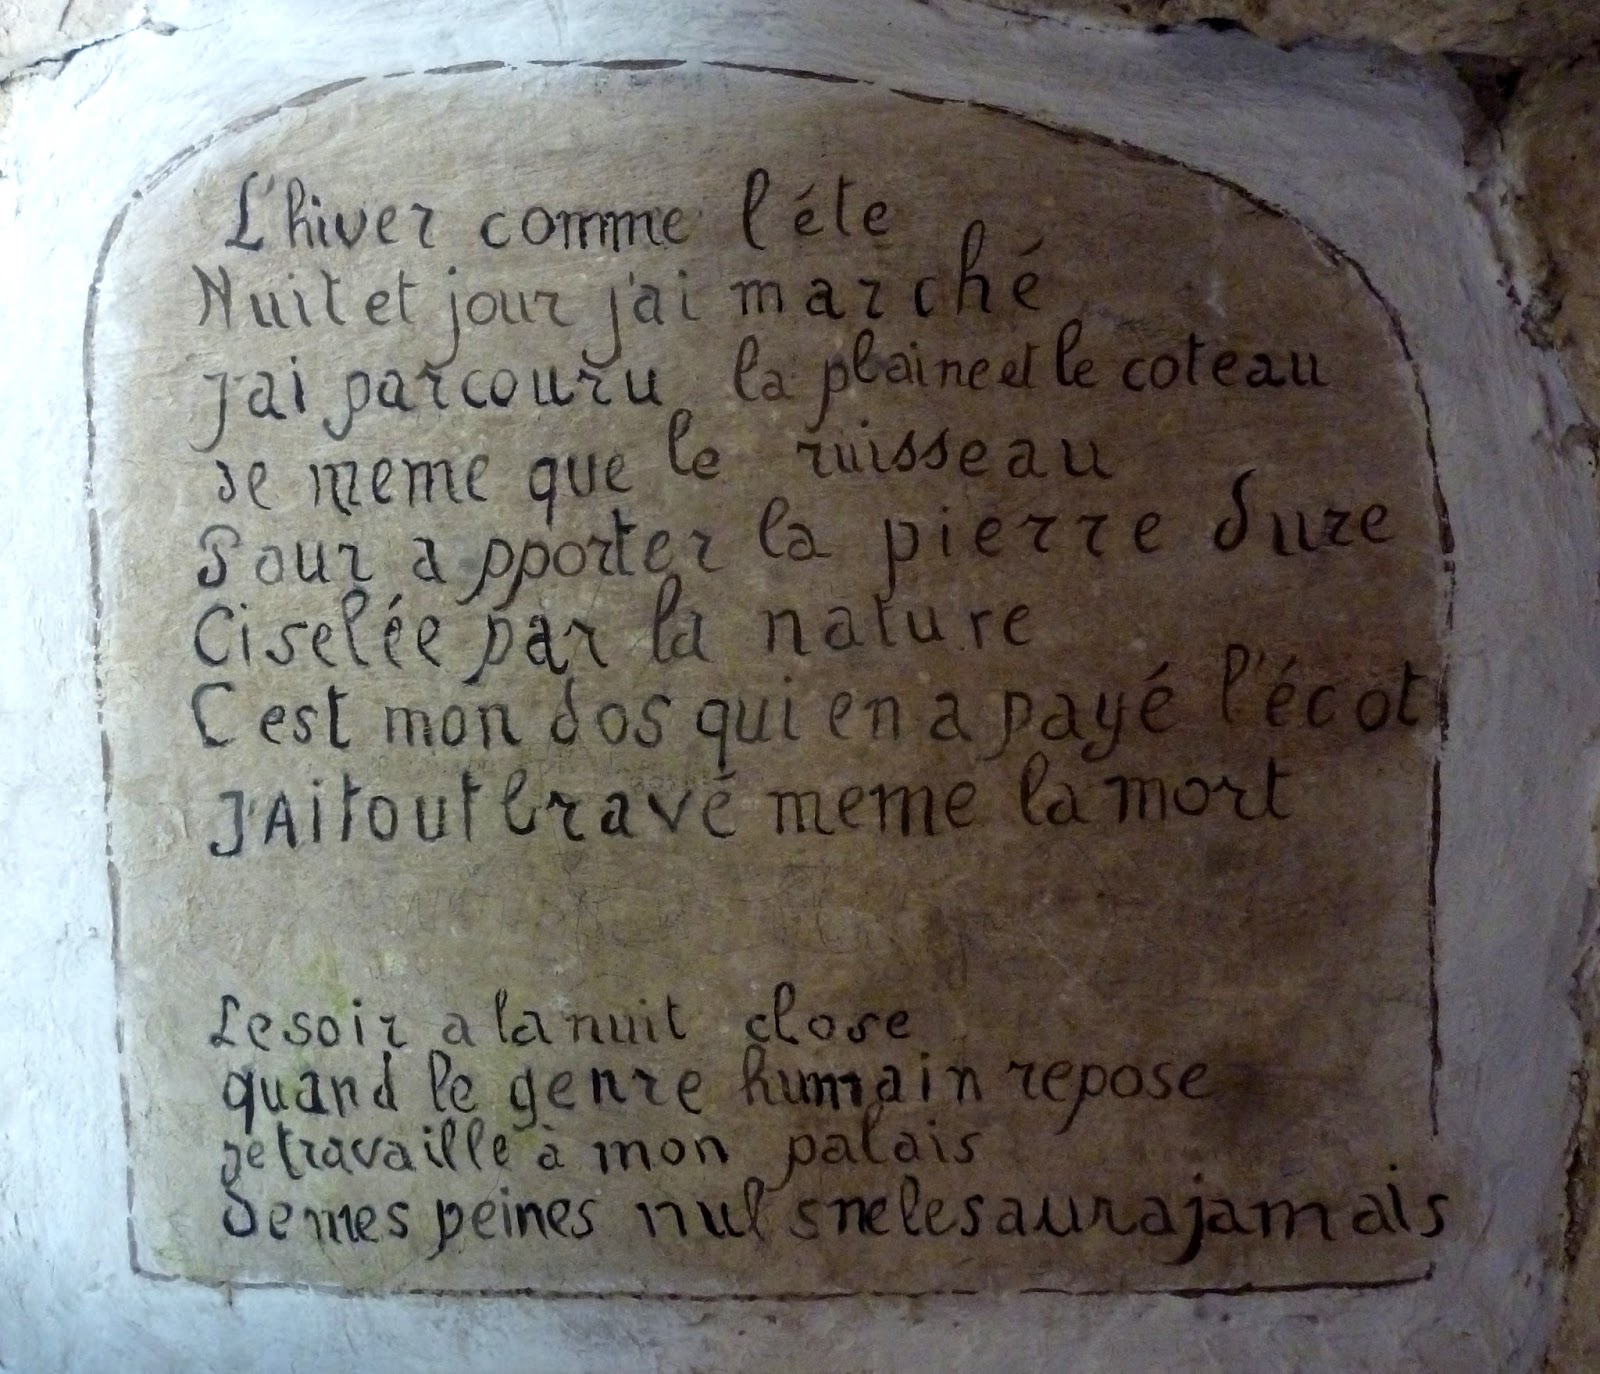 L'hiver comme l'éte
Nuit et jour j'ai marché
j'ai parcouru la plaine et le coteau
de meme que le ruisseau
Pour apporter la pierre dure
Ciselée par la nature
C est mon dos qui en a payé l'écot
J'Ai tout bravé meme la mort
Le soir a la nuit close
quand le genre humain repose
je travaille à mon palais
De mes peines nul s ne le saura jamais